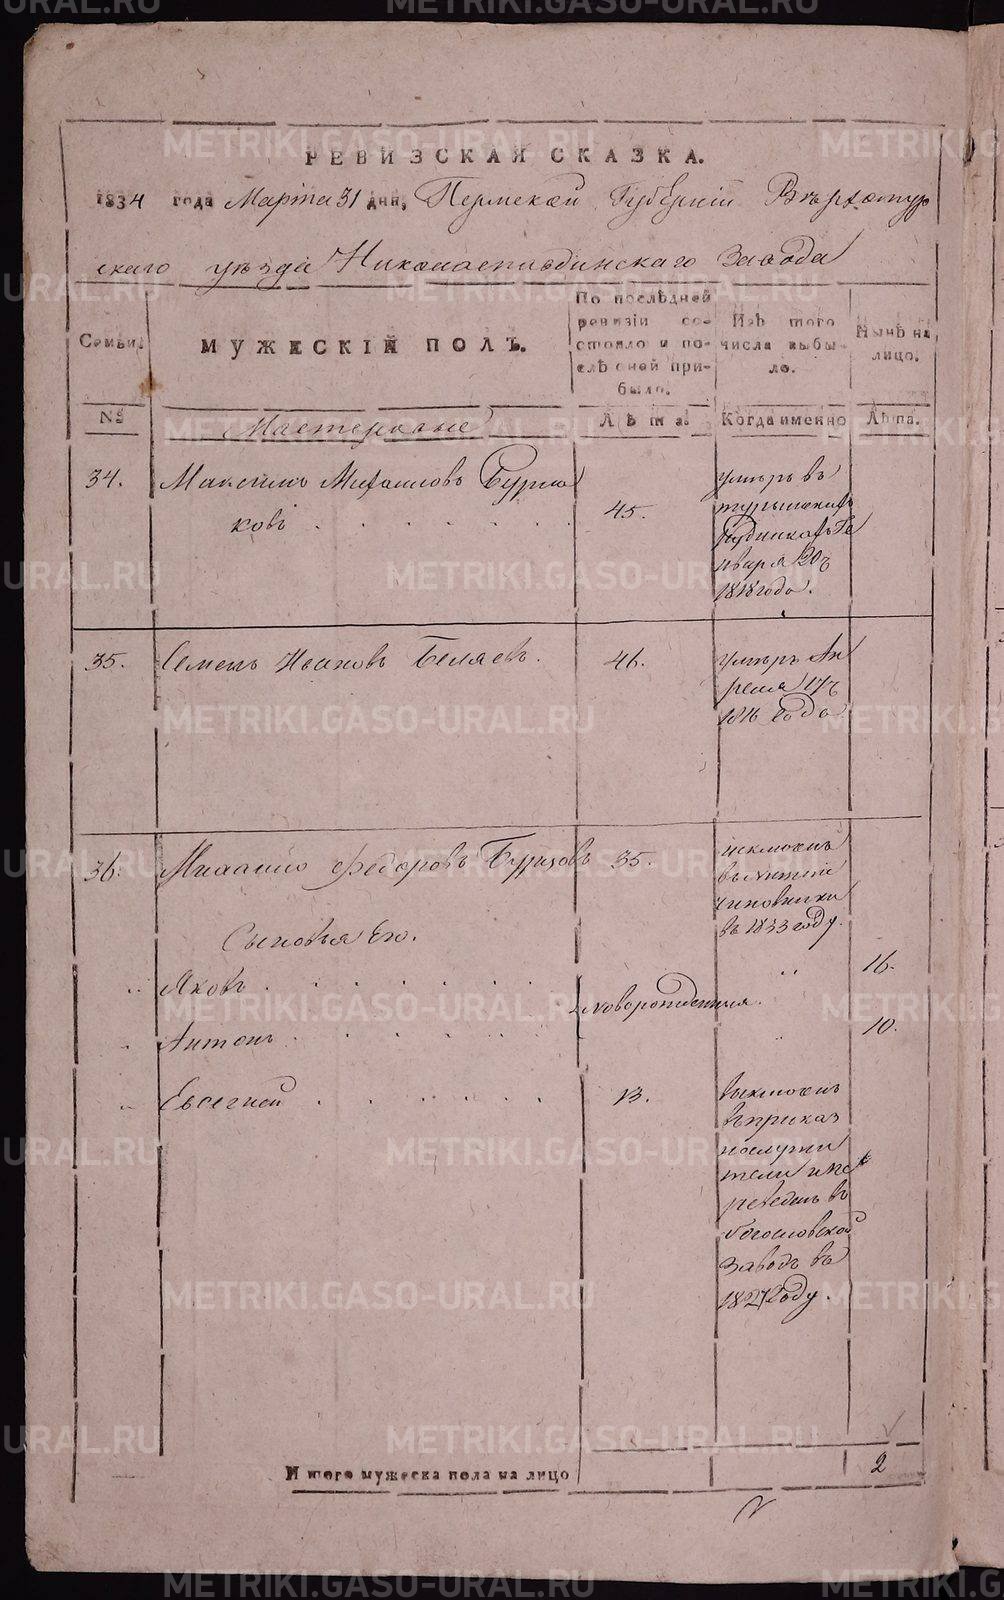 РЕВИЗСКАЯ СКАЗКА.
1834 года Марта 31 дня, Пермской Губерніи Верхотур
скаго уезда Николаепавдинскаго Завода
Семьи.
МУЖЕСКІЙ ПОЛЪ.
По послѣдней ревизіи со-
стояло и по-
слѣ оней при-
было.
Изъ того
числа выбы-
ло.
Нынѣ на
лицо.
№
Мастеровые
Лѣта.
Когда именно
Лѣта.
34.
Максимъ Михаиловъ Бурма
ковъ
45.
умеръ въ
турьинскихъ
рудникахъ Ге
нваря 20
1818 года.
35.
Семенъ Ивановъ Беляевъ.
46.
умеръ Ап
реля 17
1816 года
36.
Михаило Федоровъ Бурцовъ
35.
въ 1833 году.
чиновники
Сыновья Его.
Яковъ
новорожденныя.
16.
Антонъ
10.
Евсегней
13.
выключенъ
въ приказ
нослужи
тели и пе
реведенъ въ
богословской
Заводъ въ
1827 году.
Итого мужеска пола на лицо
2
METRIKI.GASO-URAL.RU